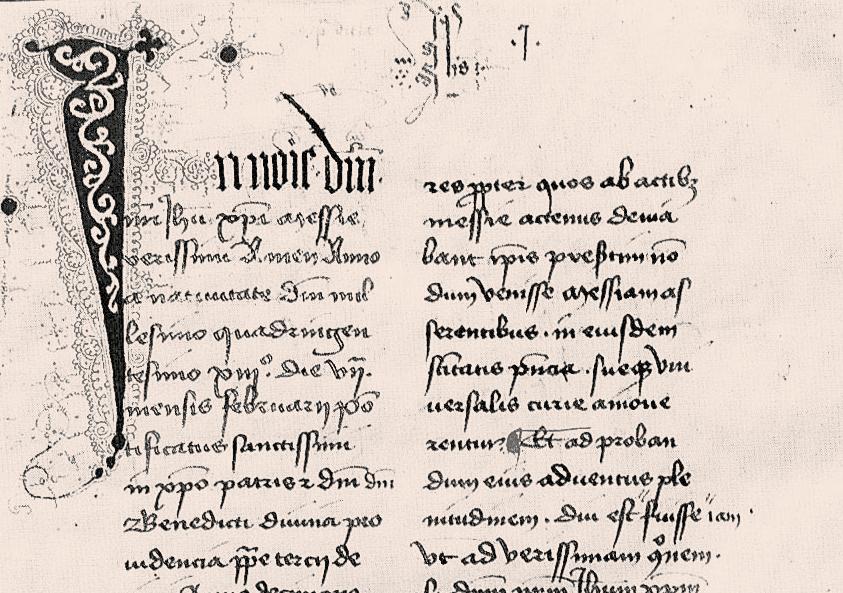 .j.
In noīe dm̄
nr̄i Jhū xp̄i messie
verissimi Amen Anno
a natiuitate Dm̄ mil
lesimo quadringen
tesimo xiijº. Die vij.
mensis februarij pō
tificatus sanctissimi
in xp̄o patris z dm̄ dm̄
Benedicti diuina pro
uidencia pp̄e tercij de
res propter quos ab actibz
messie actenus deuia
bant ip̄is presertim nō
dum venisse messiam as
serentibus. in eiusdem
sc̄itatis pn̄cia. sueqz vni
uersalis curie amoue
rentur. Et ad proban
dum eius aduentus ple
nitudinem. diu est fuisse iam
vt ad verissimam